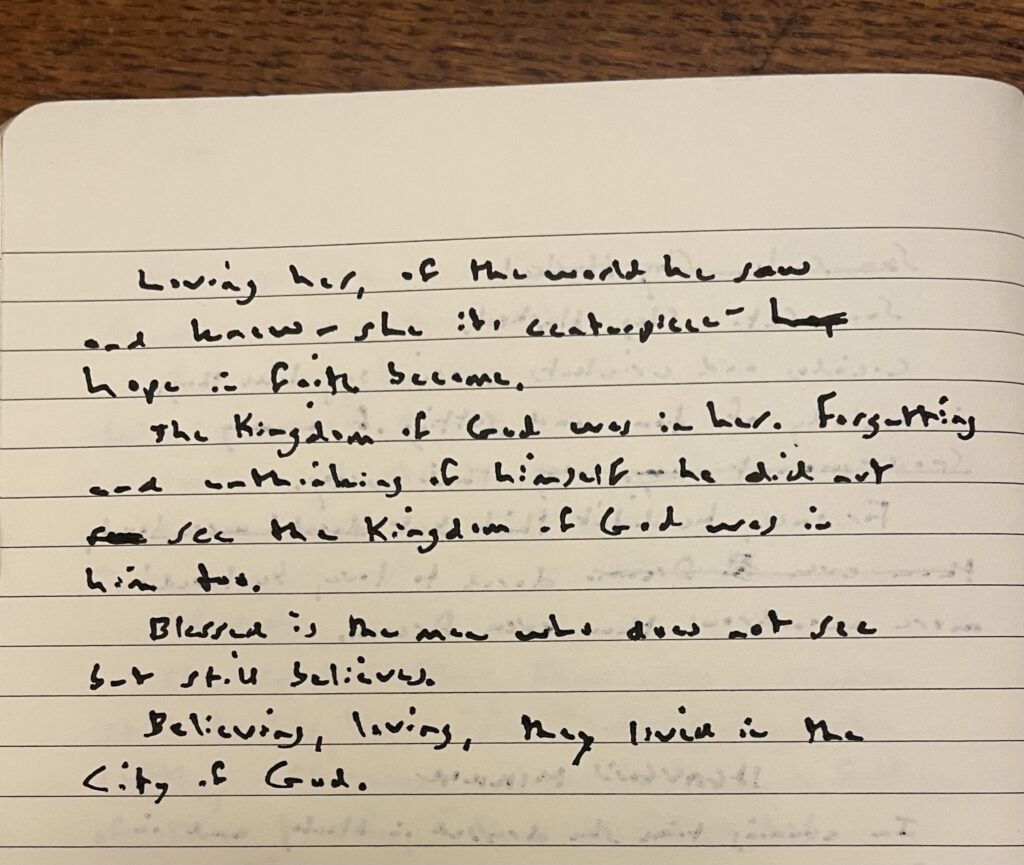 Loving her, of the world he saw
and knew – she its centerpiece –
hope in faith became.
The Kingdom of God was in her. Forgetting
and unthinking of himself – he did not
see the Kingdom of God was in
him too.
Blessed is the man who does not see
but still believes.
Believing, loving, they lived in the
City of God.